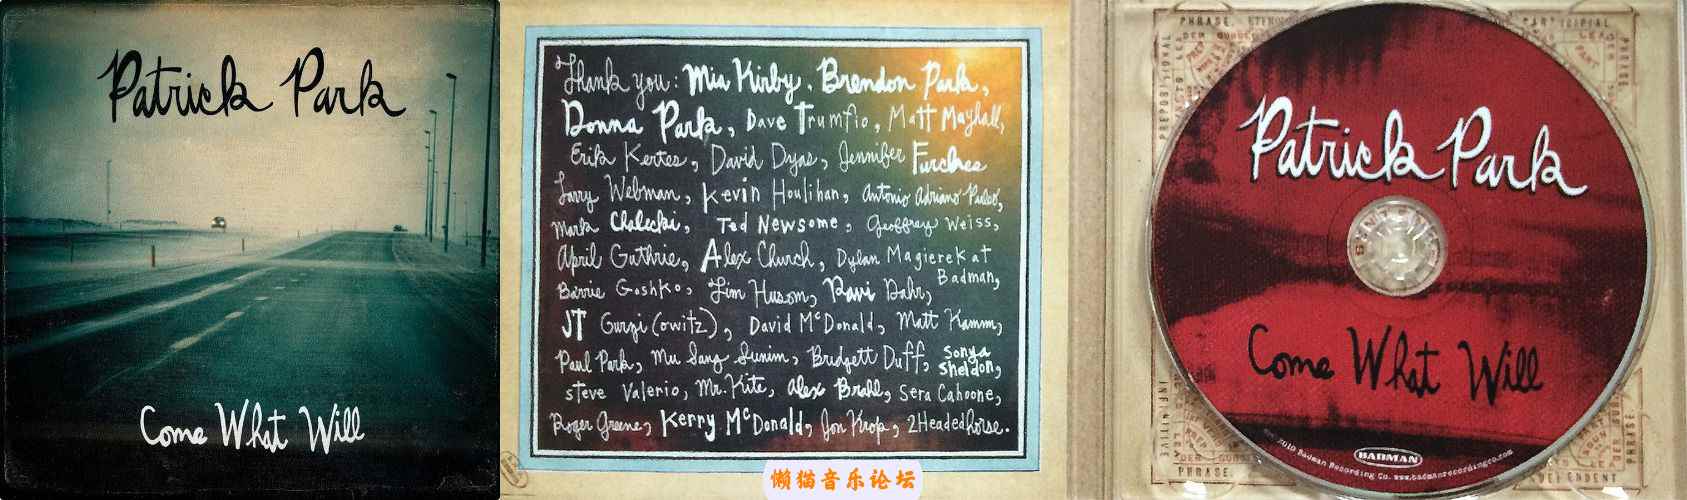 Patrick Park
Come What Will
Thank you: Mia Kirby, Brendon Park,
Donna Park, Dave Trumfio, Matt Mayhall,
Erik Kertes, David Dyas, Jennifer Furches
Larry Webman, Kevin Houlihan, Antonio Adriano Puleo,
Mark Chalecki, Ted Newsome, Geoffrey Weiss,
April Guthrie, Alex Church, Dylan Magierek at
Badman,
Barrie Goshko, Jim Huson, Ravi Dahr,
JT Gurzi(owitz), David McDonald, Matt Kamm,
Paul Park, Mu Sang Sunim, Bridgett Duff, Sonya
Sheldon,
Steve Valerio, Mr. Kite, Alex Brahl, Sera Cahoone,
Roger Greene, Kerry McDonald, Jon Krop, 2Headedhorse.
懒猫音乐论坛
PHRASE.
PARTICIPIAL
PREPOSITIONAL
Patrick Park
Come What Will
BADMAN
2010 Badman Recording Co. www.badmanrecordingco.com
PHRASE
INDEPENDENT